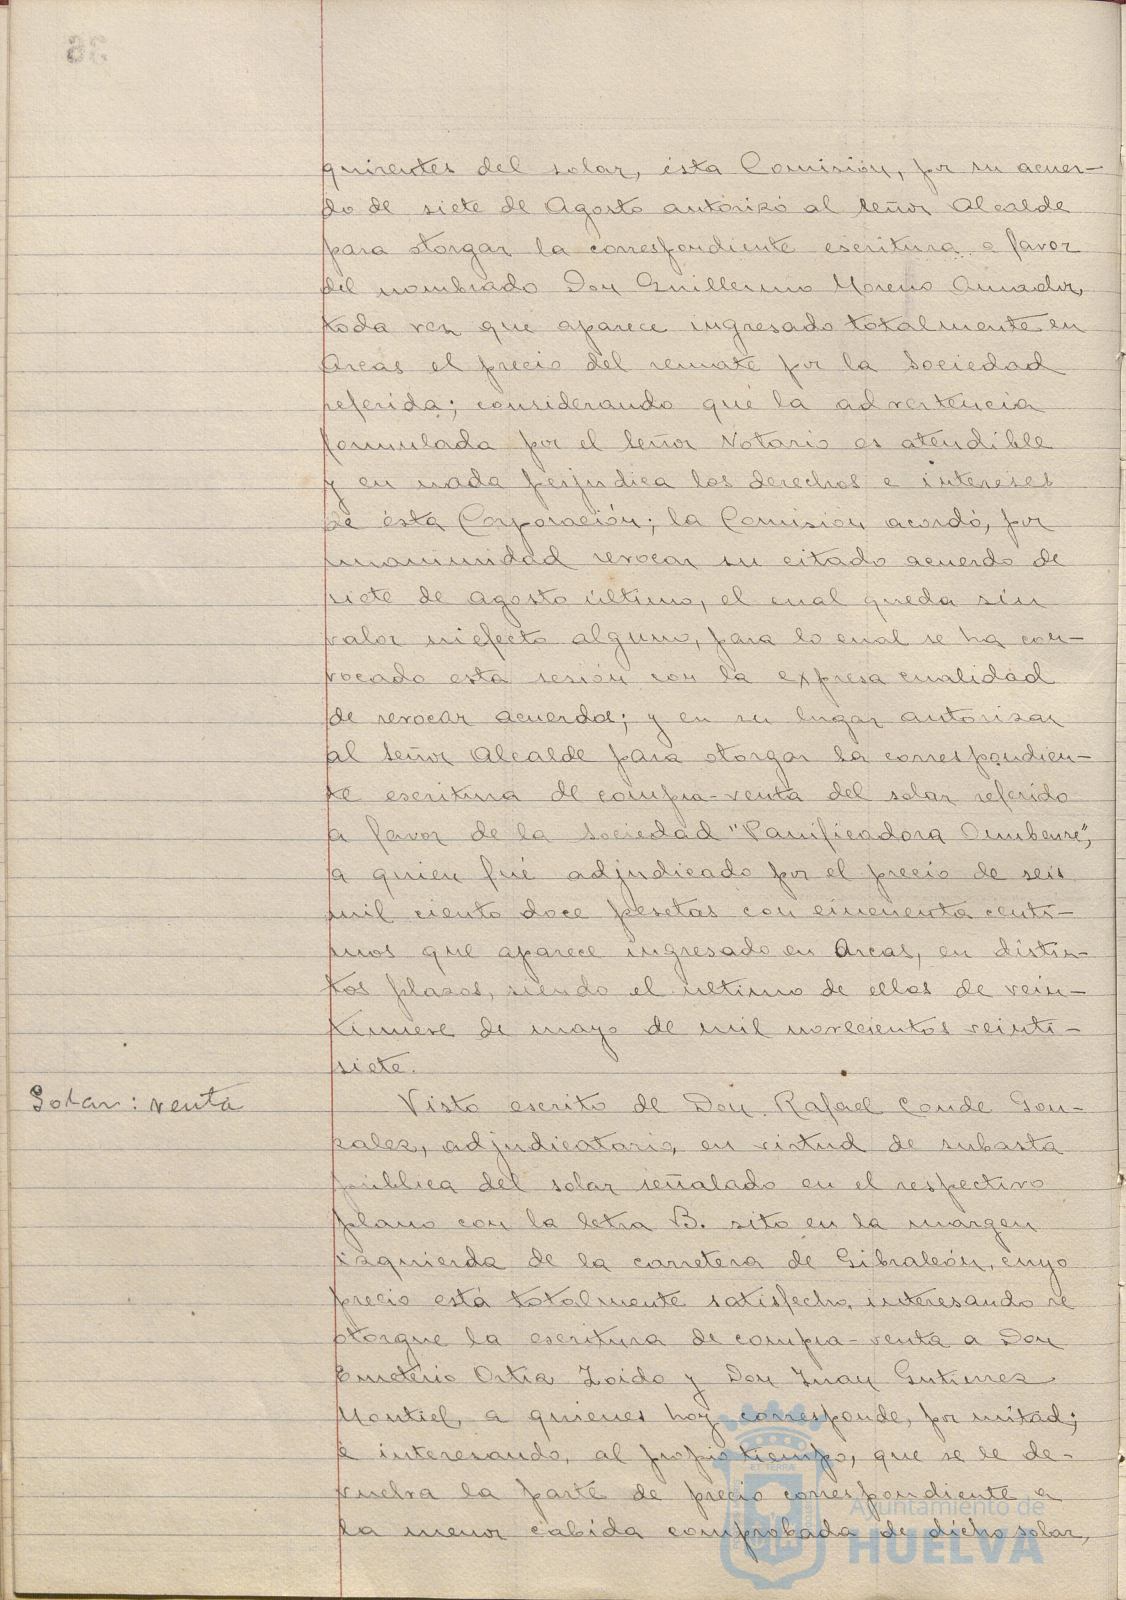 quirentes del solar, ésta Comisión, por su acuer-
do de siete de Agosto autorizó al señor Alcalde
para otorgar la correspondiente escritura a favor
del nombrado Don Guillermo Moreno Amador,
toda vez que aparece ingresado totalmente en
Arcas el precio del remate por la Sociedad
referida; considerando que la advertencia
formulada por el señor Notario es atendible
y en nada perjudica los derechos e intereses
de ésta Corporación; la Comisión acordó, por
unanimidad revocar su citado acuerdo de
siete de agosto último, el cual queda sin
valor ni efecto alguno, para lo cual se ha con-
vocado esta sesión con la expresa cualidad
de revocar acuerdos; y en su lugar autorizar
al señor Alcalde para otorgar la correspondien-
te escritura de compra-venta del solar referido
a favor de la Sociedad "Panificadora Onubense",
a quien fué adjudicado por el precio de seis
mil ciento doce pesetas con cincuenta centi-
mos que aparece ingresado en Arcas, en distin-
tos plazos, siendo el último de ellos de vein-
tinueve de mayo de mil novecientos veinti-
siete.
Solar: venta
Visto escrito de Don Rafael Conde Gon-
zalez, adjudicatario, en virtud de subasta
pública del solar señalado en el respectivo
plano con la letra B. sito en la margen
izquierda de la carretera de Gibraleón, cuyo
precio está totalmente satisfecho, interesando se
otorgue la escritura de compra-venta a Don
Emeterio Ortia Zoido y Don Juan Gutierrez
Montiel, a quienes hoy corresponde, por mitad;
e interesando, al propio tiempo, que se le de-
vuelva la parte de precio correspondiente a
la menor cabida comprobada de dicho solar,
Ayuntamiento de
HUELVA